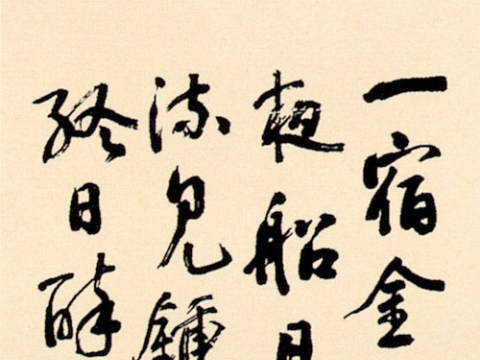 一宿金
夜船月
流見鍾
終日醉